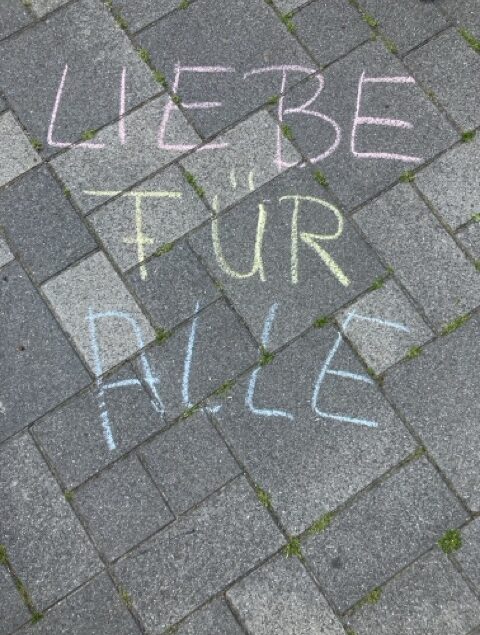 LIEBE
FÜR
ALLE